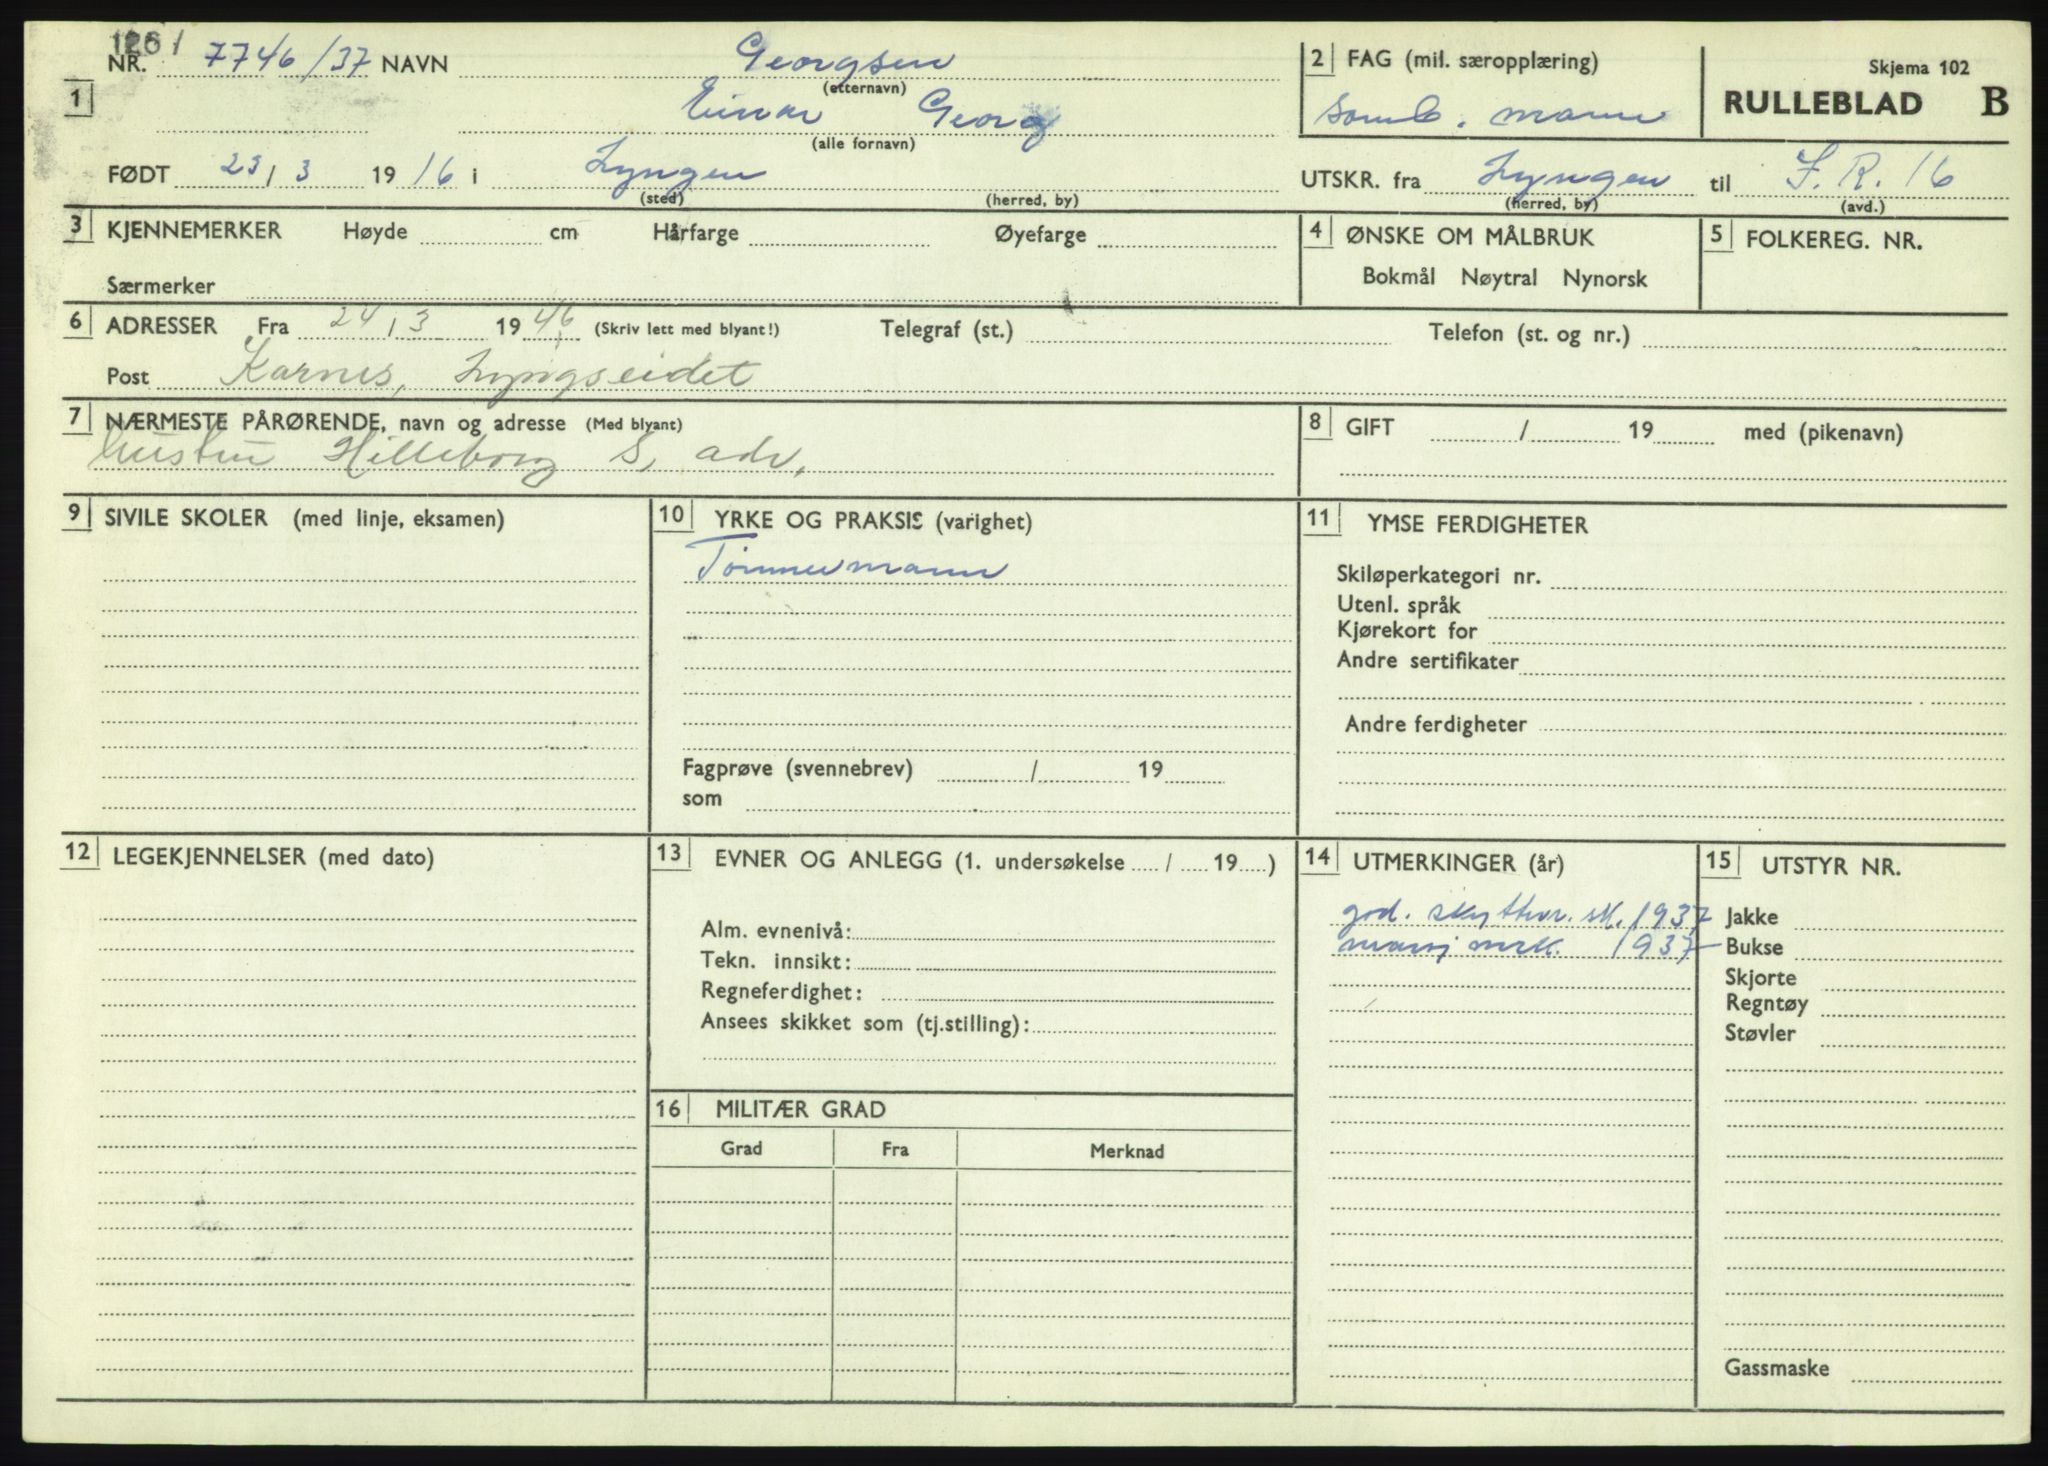 1261
NR. 7746/37 NAVN Georgsen
(etternavn)
1
Einar Georg
(alle fornavn)
FØDT 23/3 1916 i Lyngen
(sted) (herred, by)
2 FAG (mil. særopplæring)
samb. mann
Skjema 102
RULLEBLAD B
UTSKR. fra Lyngen til I.R. 16
(herred, by) (avd.)
3 KJENNEMERKER Høyde cm Hårfarge Øyefarge
Særmerker
4 ØNSKE OM MÅLBRUK
Bokmål Nøytral Nynorsk
5 FOLKEREG. NR.
6 ADRESSER Fra 24/3 1946 (Skriv lett med blyant!) Telegraf (st.) Telefon (st. og nr.)
Post Karnes, Lyngseidet
7 NÆRMESTE PÅRØRENDE, navn og adresse (Med blyant)
Hilleborg S. adr.
8 GIFT / 19 med (pikenavn)
9 SIVILE SKOLER (med linje, eksamen)
10 YRKE OG PRAKSIS (varighet)
Tømmermann
Fagprøve (svennebrev) / 19
som
11 YMSE FERDIGHETER
Skiløperkategori nr.
Utenl. språk
Kjørekort for
Andre sertifikater
Andre ferdigheter
12 LEGEKJENNELSER (med dato)
13 EVNER OG ANLEGG (1. undersøkelse / 19 )
Alm. evnenivå:
Tekn. innsikt:
Regneferdighet:
Ansees skikket som (tj.stilling):
14 UTMERKINGER (år)
god. skytter. sk. 1937
marsj mrk. 1937
15 UTSTYR NR.
Jakke
Bukse
Skjorte
Regntøy
Støvler
Gassmaske
16 MILITÆR GRAD
Grad Fra Merknad